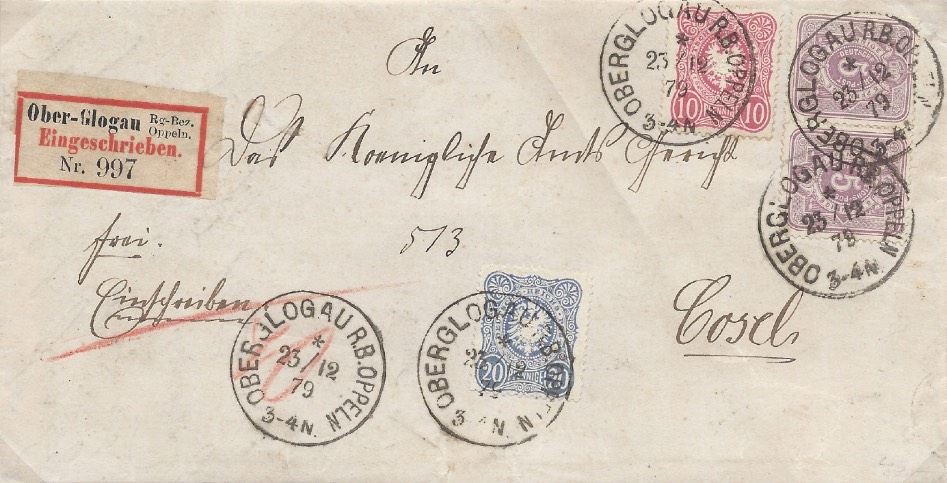 An
Das Koenigliche Amts Gericht
frei.
513
Einschreiben
Cosel
Ober-Glogau Rg-Bez. Oppeln.
Eingeschrieben.
Nr. 997
OBERGLOGAU R.B. OPPELN
*
23/12
79
3-4N.
10 PFENNIGE 10
OBERGLOGAU R.B. OPPELN
*
23/12
79
5
OBERGLOGAU R.B. OPPELN
*
23/12
79
3-4N.
5
OBERGLOGAU R.B. OPPELN
*
23/12
79
3-4N.
OBERGLOGAU R.B. OPPELN
*
23/12
79
3-4N.
20 PFENNIGE 20